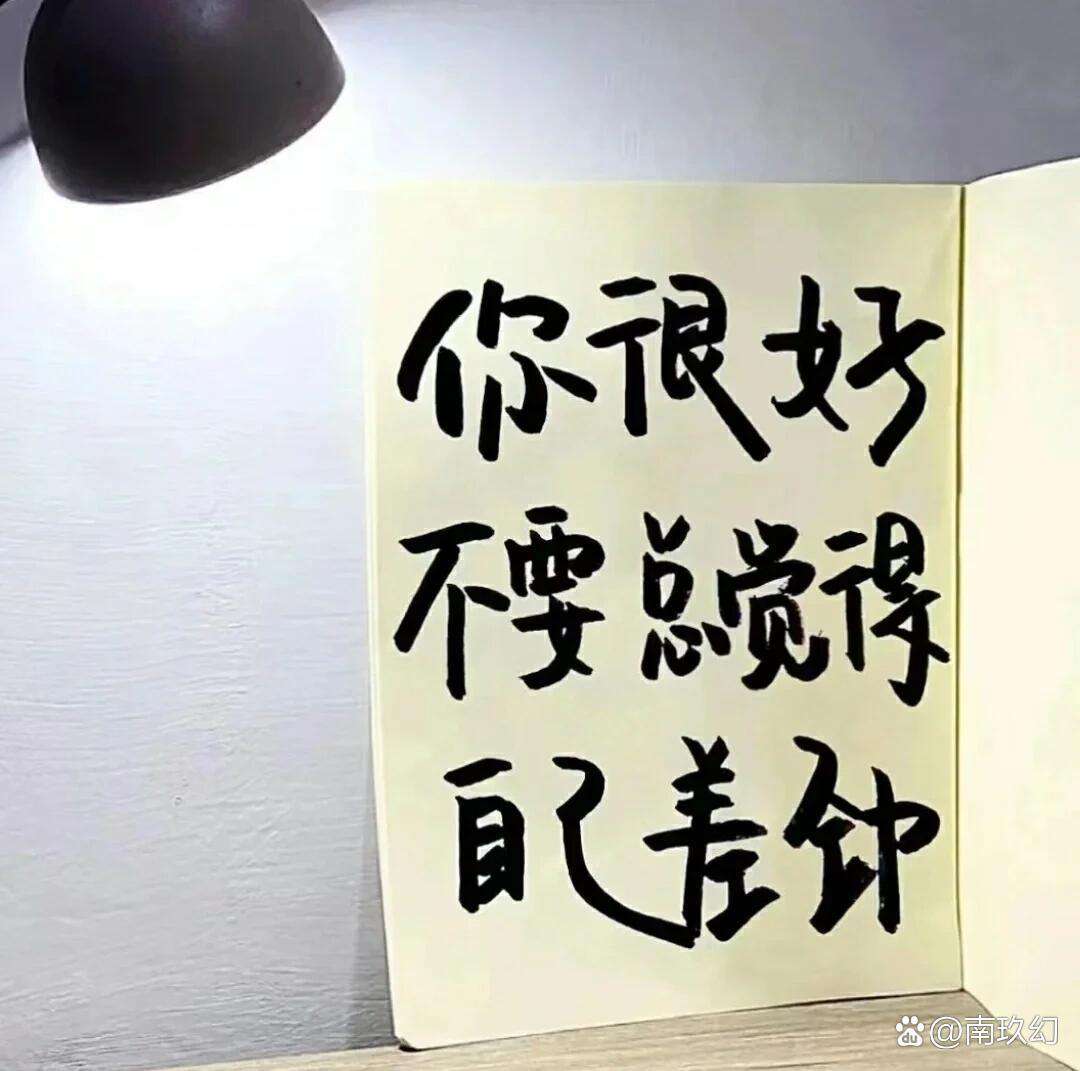 你很好
不要总觉得
自己差劲
@南玖幻